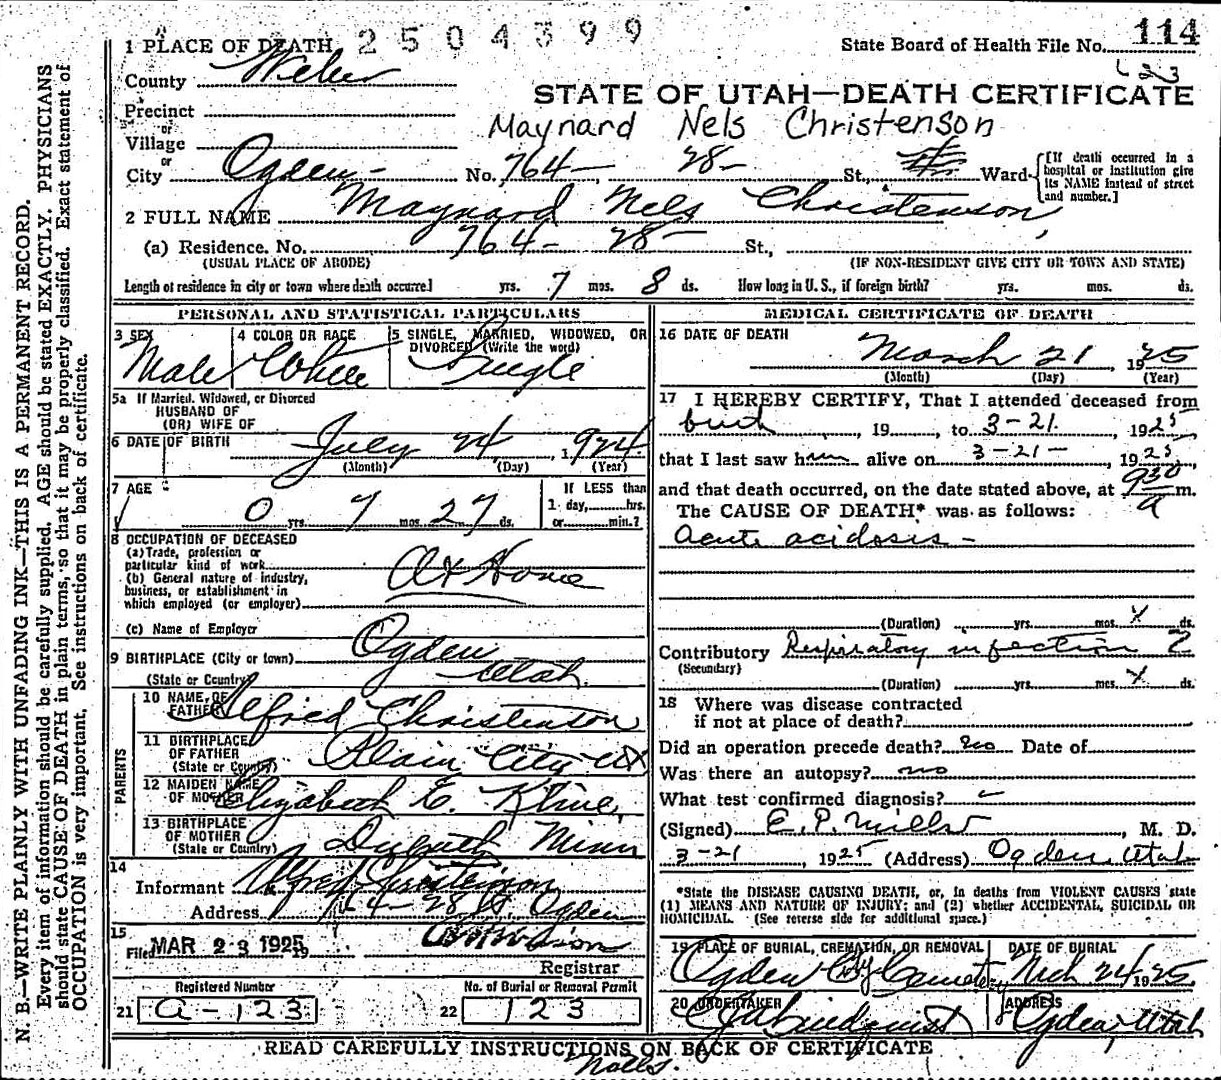 2504399
State Board of Health File No. 114
123
1 PLACE OF DEATH
County Weber
STATE OF UTAH—DEATH CERTIFICATE
Precinct
or
Village
Maynard Nels Christenson
or
City Ogden - No. 764 - 28 - St., Ward
[If death occurred in a hospital or institution give its NAME instead of street and number.]
2 FULL NAME Maynard Nels Christenson,
(a) Residence. No. 764 - 28 - St.,
(USUAL PLACE OF ABODE) (IF NON-RESIDENT GIVE CITY OR TOWN AND STATE)
Length of residence in city or town where death occurred yrs. 7 mos. 8 ds. How long in U. S., if foreign birth? yrs. mos. ds.
PERSONAL AND STATISTICAL PARTICULARS
3 SEX 4 COLOR OR RACE 5 SINGLE, MARRIED, WIDOWED, OR DIVORCED (Write the word)
Male White Single
5a If Married, Widowed, or Divorced
HUSBAND OF
(OR) WIFE OF
6 DATE OF BIRTH July 24, 1924
(Month) (Day) (Year)
7 AGE
0 yrs. 7 mos. 27 ds.
If LESS than
1 day, hrs.
or min.?
8 OCCUPATION OF DECEASED
(a) Trade, profession or
particular kind of work
(b) General nature of industry,
business, or establishment in
which employed (or employer)
At Home
(c) Name of Employer
9 BIRTHPLACE (City or town) Ogden
(State or Country) Utah
PARENTS
10 NAME OF FATHER Alfred Christenson
11 BIRTHPLACE OF FATHER (State or Country) Plain City Ut
12 MAIDEN NAME OF MOTHER Elizabeth E. Kline,
13 BIRTHPLACE OF MOTHER (State or Country) Duluth Minn
14
Informant Alfred Christenson
Address 764 - 28 St. Ogden
15
Filed MAR 23 1925, 19
Registrar
Registered Number No. of Burial or Removal Permit
21 a-123 22 123
MEDICAL CERTIFICATE OF DEATH
16 DATE OF DEATH
March 21 1925
(Month) (Day) (Year)
17 I HEREBY CERTIFY, That I attended deceased from
birth, 19, to 3-21., 1925,
that I last saw him alive on 3-21-, 1925,
and that death occurred, on the date stated above, at 930 a m.
The CAUSE OF DEATH* was as follows:
Acute acidosis -
(Duration) yrs. mos. X ds.
Contributory Respiratory infection 2
(Secondary)
(Duration) yrs. mos. X ds.
18 Where was disease contracted
if not at place of death?
Did an operation precede death? no Date of
Was there an autopsy? no
What test confirmed diagnosis?
(Signed) E. P. Mills, M. D.
3-21, 1925 (Address) Ogden, Utah
*State the DISEASE CAUSING DEATH, or, in deaths from VIOLENT CAUSES state
(1) MEANS AND NATURE OF INJURY; and (2) whether ACCIDENTAL, SUICIDAL OR
HOMICIDAL. (See reverse side for additional space.)
19 PLACE OF BURIAL, CREMATION, OR REMOVAL DATE OF BURIAL
Ogden City Cemetery Mch 24 1925
20 UNDERTAKER ADDRESS
Lindquist Ogden, Utah
READ CAREFULLY INSTRUCTIONS ON BACK OF CERTIFICATE
N. B.—WRITE PLAINLY WITH UNFADING INK—THIS IS A PERMANENT RECORD.
Every item of information should be carefully supplied. AGE should be stated EXACTLY. PHYSICIANS
should state CAUSE OF DEATH in plain terms, so that it may be properly classified. Exact statement of
OCCUPATION is very important. See instructions on back of certificate.